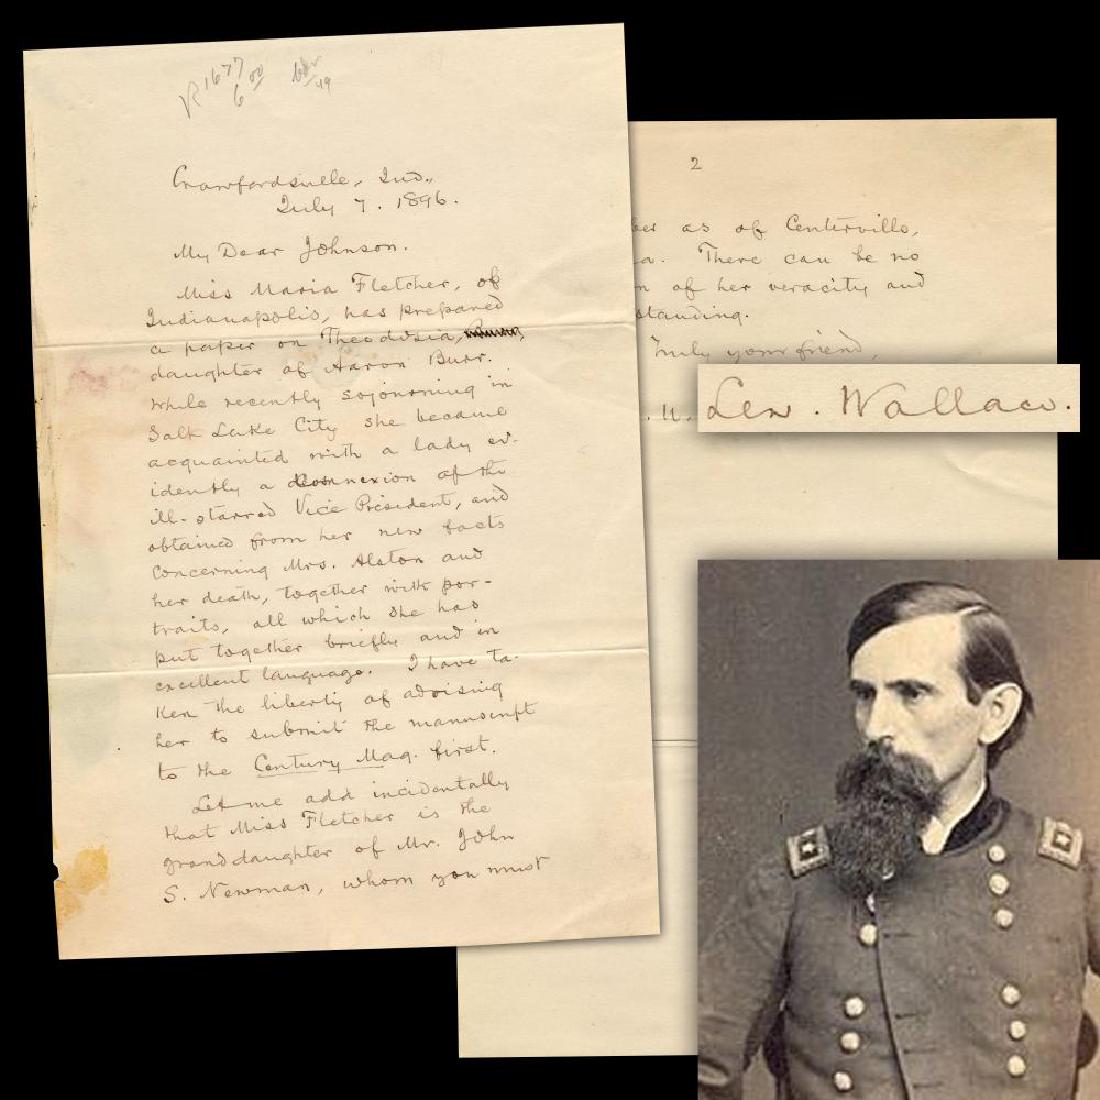 R1677
6 00
49
Crawfordsville, Ind.,
July 7. 1896.
My Dear Johnson.
Miss Maria Fletcher, of
Indianapolis, has prepared
a paper on Theodosia,
daughter of Aaron Burr.
While recently sojourning in
Salt Lake City she became
acquainted with a lady ev-
idently a connexion of the
ill-starred Vice President, and
obtained from her new facts
concerning Mrs. Alston and
her death, together with por-
traits, all which she has
put together briefly and in
excellent language. I have ta-
ken the liberty of advising
her to submit the manuscript
to the Century Mag. first.
Let me add incidentally
that Miss Fletcher is the
granddaughter of Mr. John
S. Newman, whom you must
2
ber as of Centerville,
a. There can be no
n of her veracity and
standing.
Truly your friend,
Lew. Wallace.